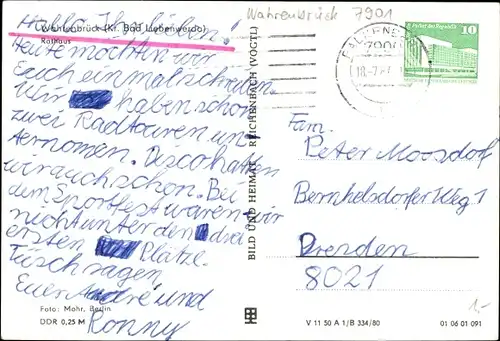 Wahrenbrück 7901
Hallo Ihr Lieben!
Wahrenbrück (Kr. Bad Liebenwerda)
Rathaus
Heute möchten wir
Euch einmal schreiben.
Wir haben schon
zwei Radtouren un
ternomen. Disco hatten
wir auch schon. Bei
dem Sportfest waren wir
nicht unter den drei
ersten Plätze.
Tüsch sagen
Euer André und
Ronny
Foto: Mohr, Berlin
DDR 0,25 M
BILD UND HEIMAT REICHENBACH (VOGTL)
10
7900
Fam.
Peter Moosdorf
Bernhelsdorfer Weg 1
Dresden
8021
V 11 50 A 1/B 334/80
01 06 01 091